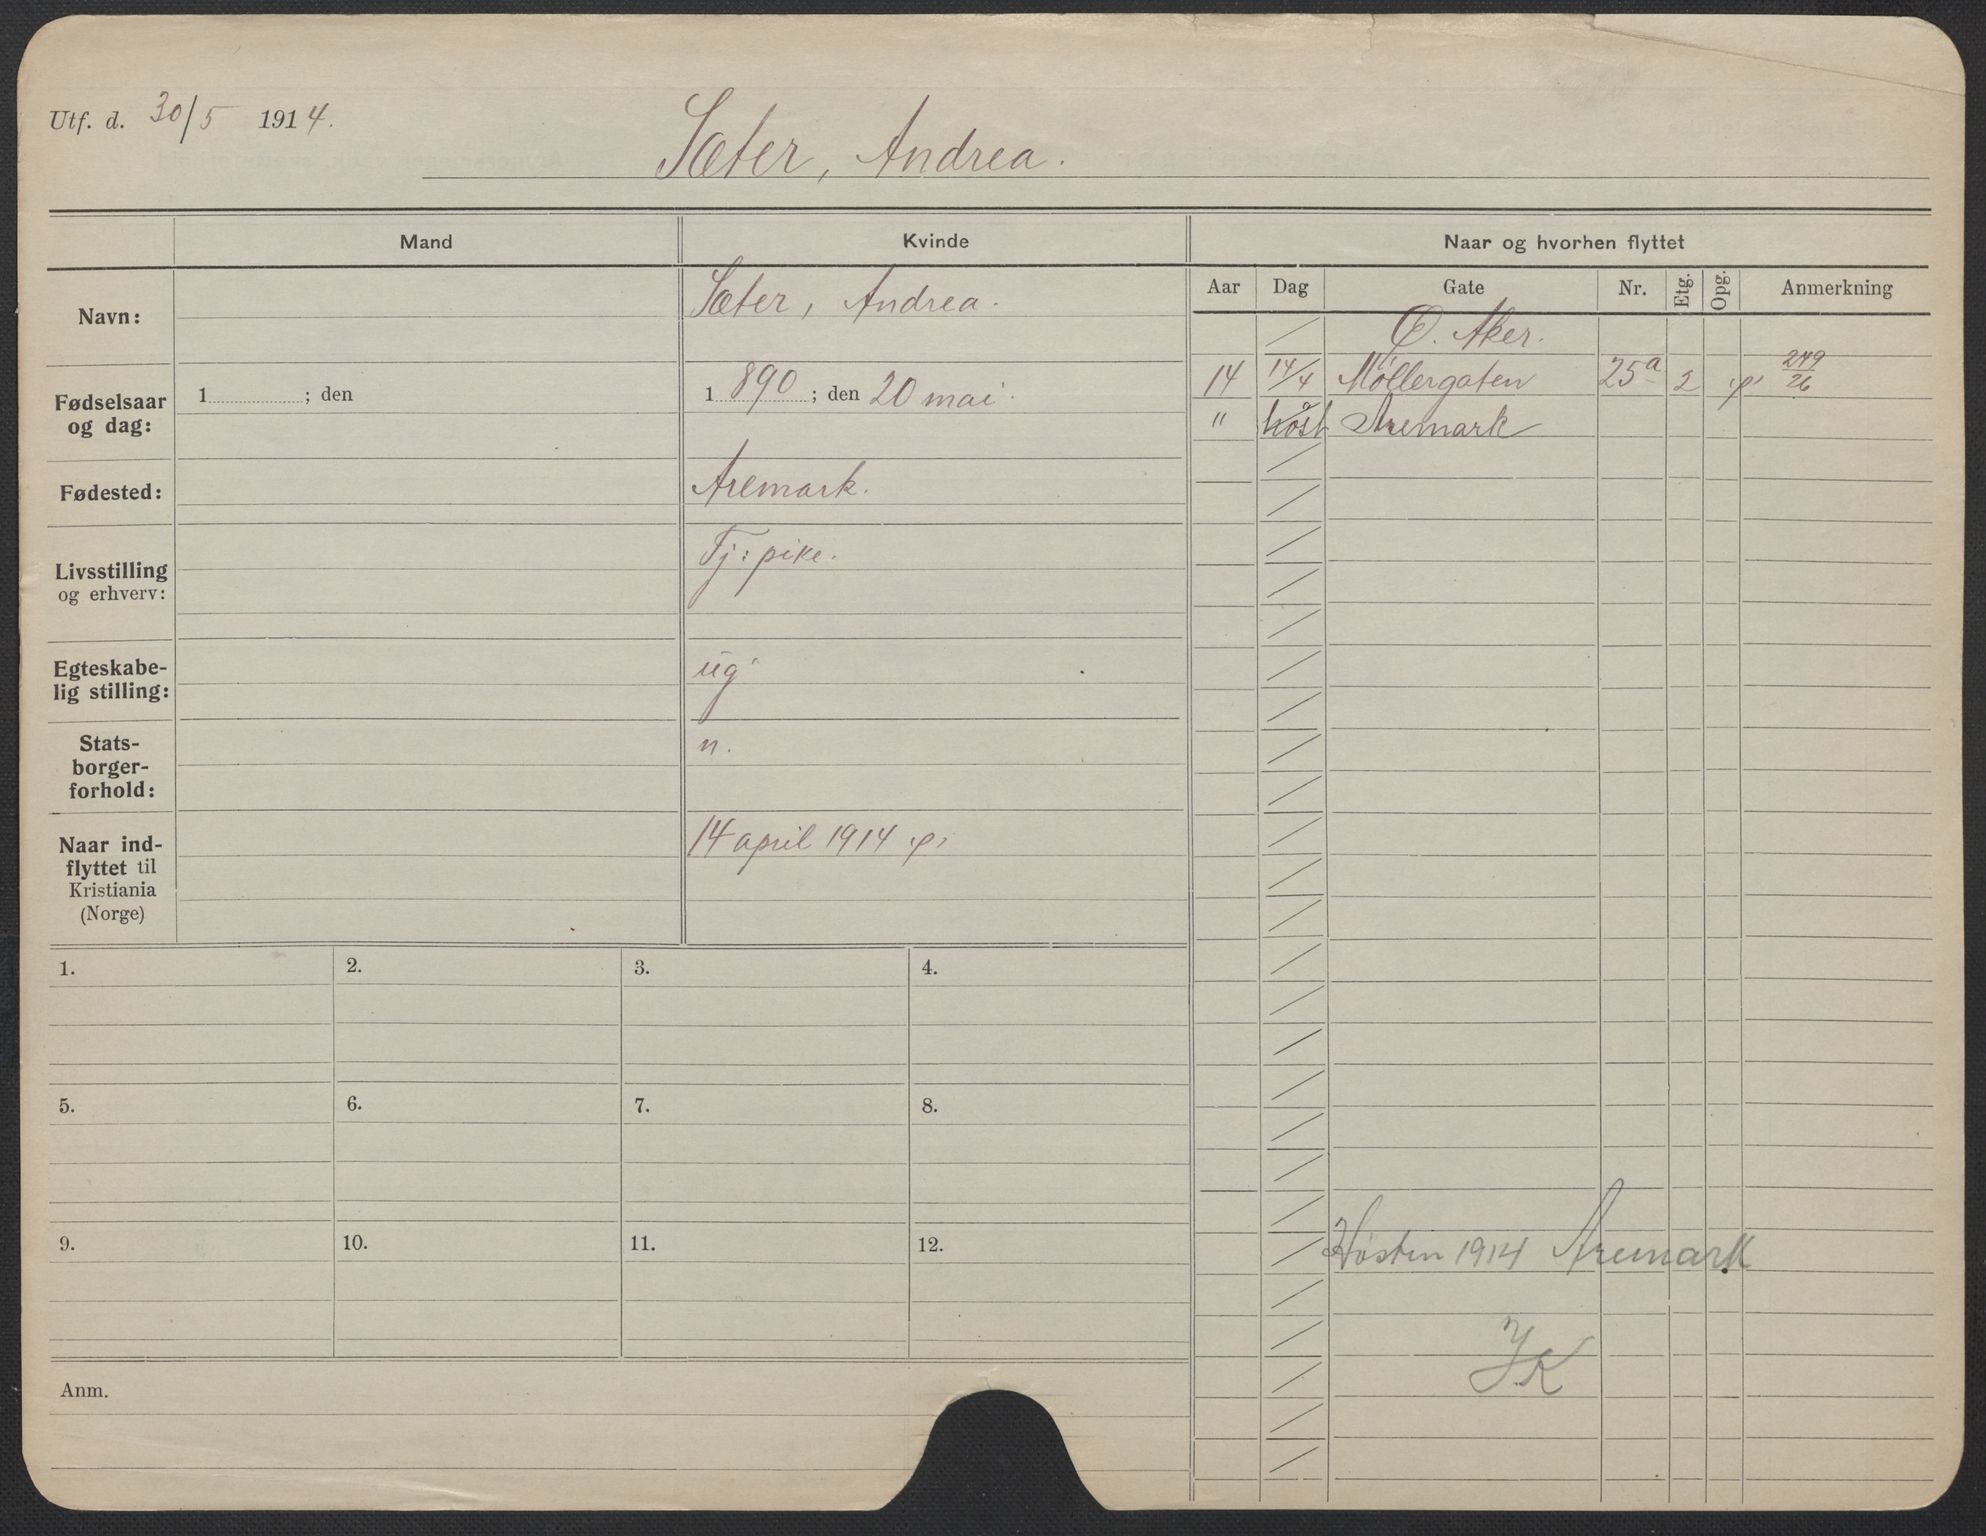 Utf. d. 30/5 1914.
Sæter, Andrea.
Mand
Kvinde
Naar og hvorhen flyttet
Navn:
Sæter, Andrea.
Fødselsaar
og dag:
1 ; den
1 890 ; den 20 mai.
Fødested:
Aremark.
Livsstilling
og erhverv:
Tj: pike.
Egteskabe-
lig stilling:
ug
Stats-
borger-
forhold:
n.
Naar ind-
flyttet til
Kristiania
(Norge)
14 april 1914
Aar Dag Gate Nr. Etg. Opg. Anmerkning
Ø. Aker.
14 14/4 Møllergaten 25a 2 249/26
" høst Aremark
Høsten 1914 Aremark
JK
1. 2. 3. 4.
5. 6. 7. 8.
9. 10. 11. 12.
Anm.